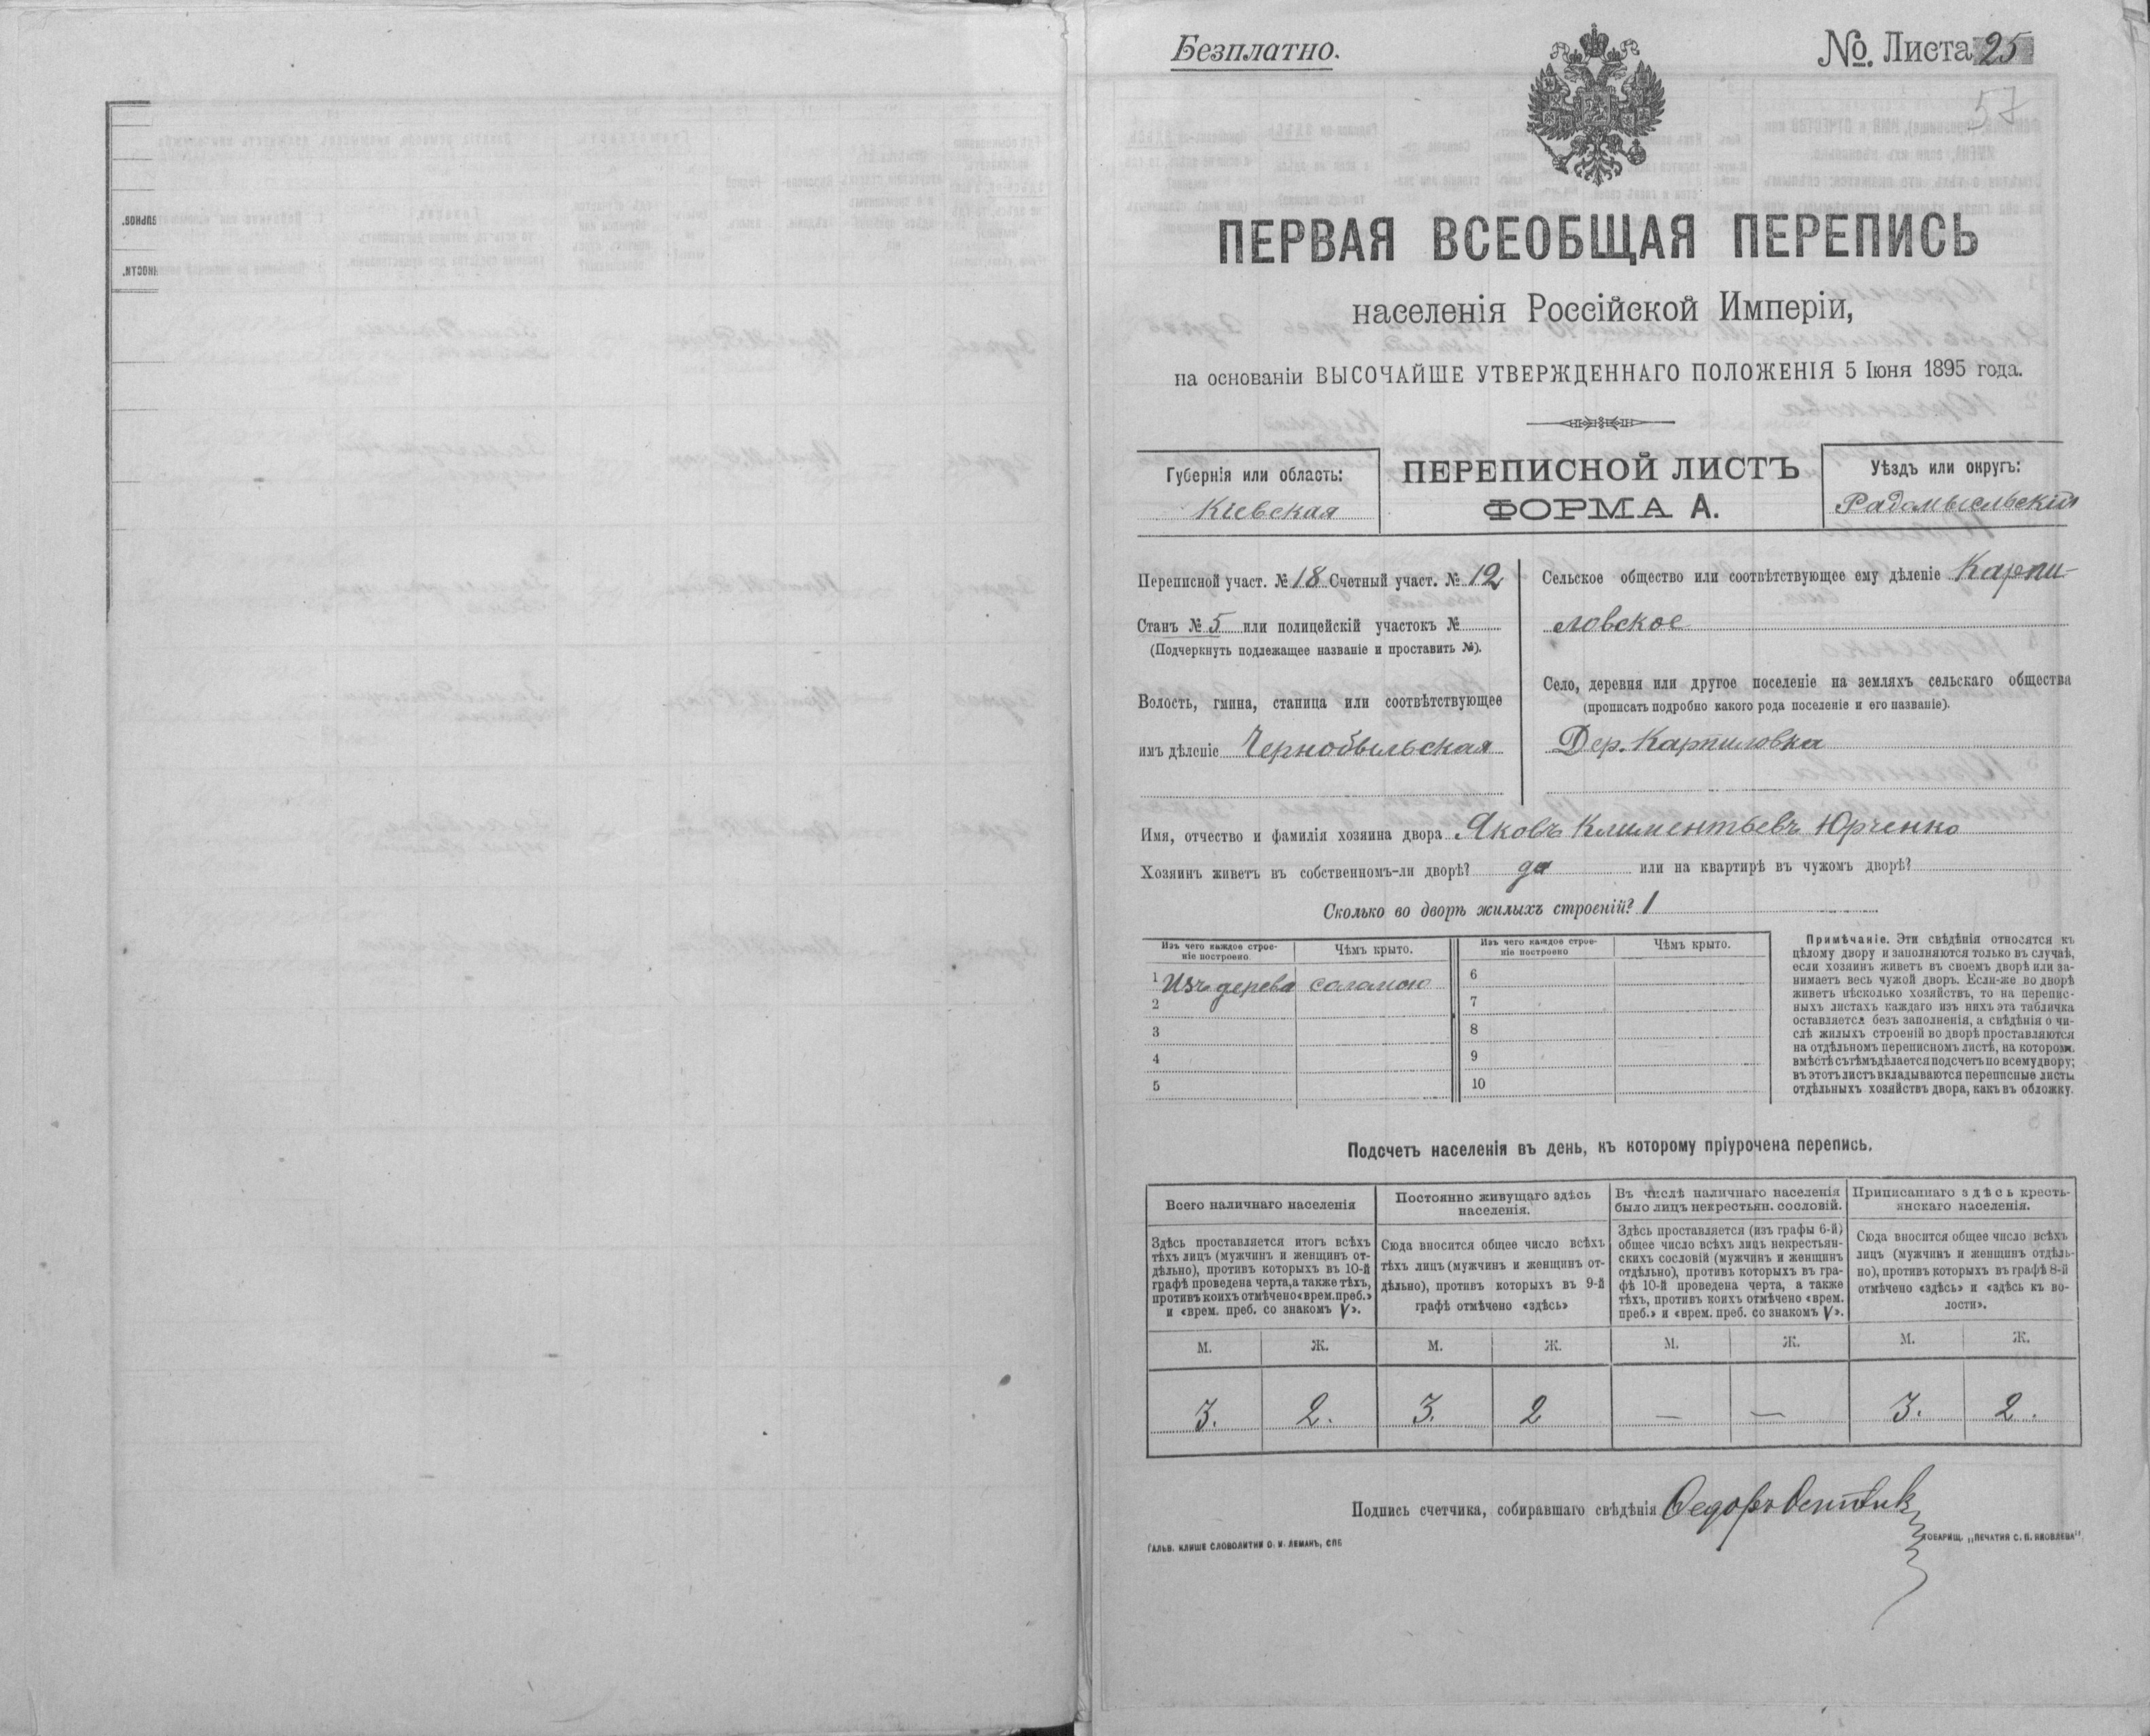 Безплатно.
№ Листа 25
57
ПЕРВАЯ ВСЕОБЩАЯ ПЕРЕПИСЬ
населенія Россійской Имперіи,
на основаніи ВЫСОЧАЙШЕ УТВЕРЖДЕННАГО ПОЛОЖЕНІЯ 5 Іюня 1895 года.
Губернія или область:
Кіевская
ПЕРЕПИСНОЙ ЛИСТЪ
ФОРМА А.
Уѣздъ или округъ:
Радомысльскій
Переписной участ. № 18 Счетный участ. № 12
Станъ № 5 или полицейскій участокъ №
(Подчеркнуть подлежащее названіе и проставить №).
Волость, гмина, станица или соотвѣтствующее
имъ дѣленіе Чернобыльская
Сельское общество или соотвѣтствующее ему дѣленіе Карпи-
ловское
Село, деревня или другое поселеніе на земляхъ сельскаго общества
(прописать подробно какого рода поселеніе и его названіе).
Дер. Карпиловка
Имя, отчество и фамилія хозяина двора Яковъ Климентьевъ Юрченко
Хозяинъ живетъ въ собственномъ-ли дворѣ? да или на квартирѣ въ чужомъ дворѣ?
Сколько во дворѣ жилыхъ строеній? 1
Изъ чего каждое строе-
ніе построено
Чѣмъ крыто.
1 Изъ дерева соломою
2
3
4
5
Изъ чего каждое строе-
ніе построено
Чѣмъ крыто.
6
7
8
9
10
Примѣчаніе. Эти свѣдѣнія относятся къ
цѣлому двору и заполняются только въ случаѣ,
если хозяинъ живетъ въ своемъ дворѣ или за-
нимаетъ весь чужой дворъ. Если-же во дворѣ
живетъ нѣсколько хозяйствъ, то на перепис-
ныхъ листахъ каждаго изъ нихъ эта табличка
оставляется безъ заполненія, а свѣдѣнія о чи-
слѣ жилыхъ строеній во дворѣ проставляются
на отдѣльномъ переписномъ листѣ, на которомъ
вмѣстѣ съ тѣмъ дѣлается подсчетъ по всему двору;
въ этотъ листъ вкладываются переписные листы
отдѣльныхъ хозяйствъ двора, какъ въ обложку.
Подсчетъ населенія въ день, къ которому пріурочена перепись.
Всего наличнаго населенія
Здѣсь проставляется итогъ всѣхъ
тѣхъ лицъ (мужчинъ и женщинъ от-
дѣльно), противъ которыхъ въ 10-й
графѣ проведена черта, а также тѣхъ,
противъ коихъ отмѣчено «врем. преб.»
и «врем. преб. со знакомъ V».
Постоянно живущаго здѣсь
населенія.
Сюда вносится общее число всѣхъ
тѣхъ лицъ (мужчинъ и женщинъ от-
дѣльно), противъ которыхъ въ 9-й
графѣ отмѣчено «здѣсь»
Въ числѣ наличнаго населенія
было лицъ некрестьян. сословій.
Здѣсь проставляется (изъ графы 6-й)
общее число всѣхъ лицъ некрестьян-
скихъ сословій (мужчинъ и женщинъ
отдѣльно), противъ которыхъ въ гра-
фѣ 10-й проведена черта, а также
тѣхъ, противъ коихъ отмѣчено «врем.
преб.» и «врем. преб. со знакомъ V».
Приписаннаго здѣсь кресть-
янскаго населенія.
Сюда вносится общее число всѣхъ
лицъ (мужчинъ и женщинъ отдѣль-
но), противъ которыхъ въ графѣ 8-й
отмѣчено «здѣсь» и «здѣсь къ во-
лости».
М. Ж. М. Ж. М. Ж. М. Ж.
3. 2. 3. 2 — — 3. 2.
Подпись счетчика, собиравшаго свѣдѣнія Ѳедоръ
ГАЛЬВ. КЛИШЕ СЛОВОЛИТНИ О. И. ЛЕМАНЪ, СПБ
ТОВАРИЩ. „ПЕЧАТНЯ С. П. ЯКОВЛЕВА"